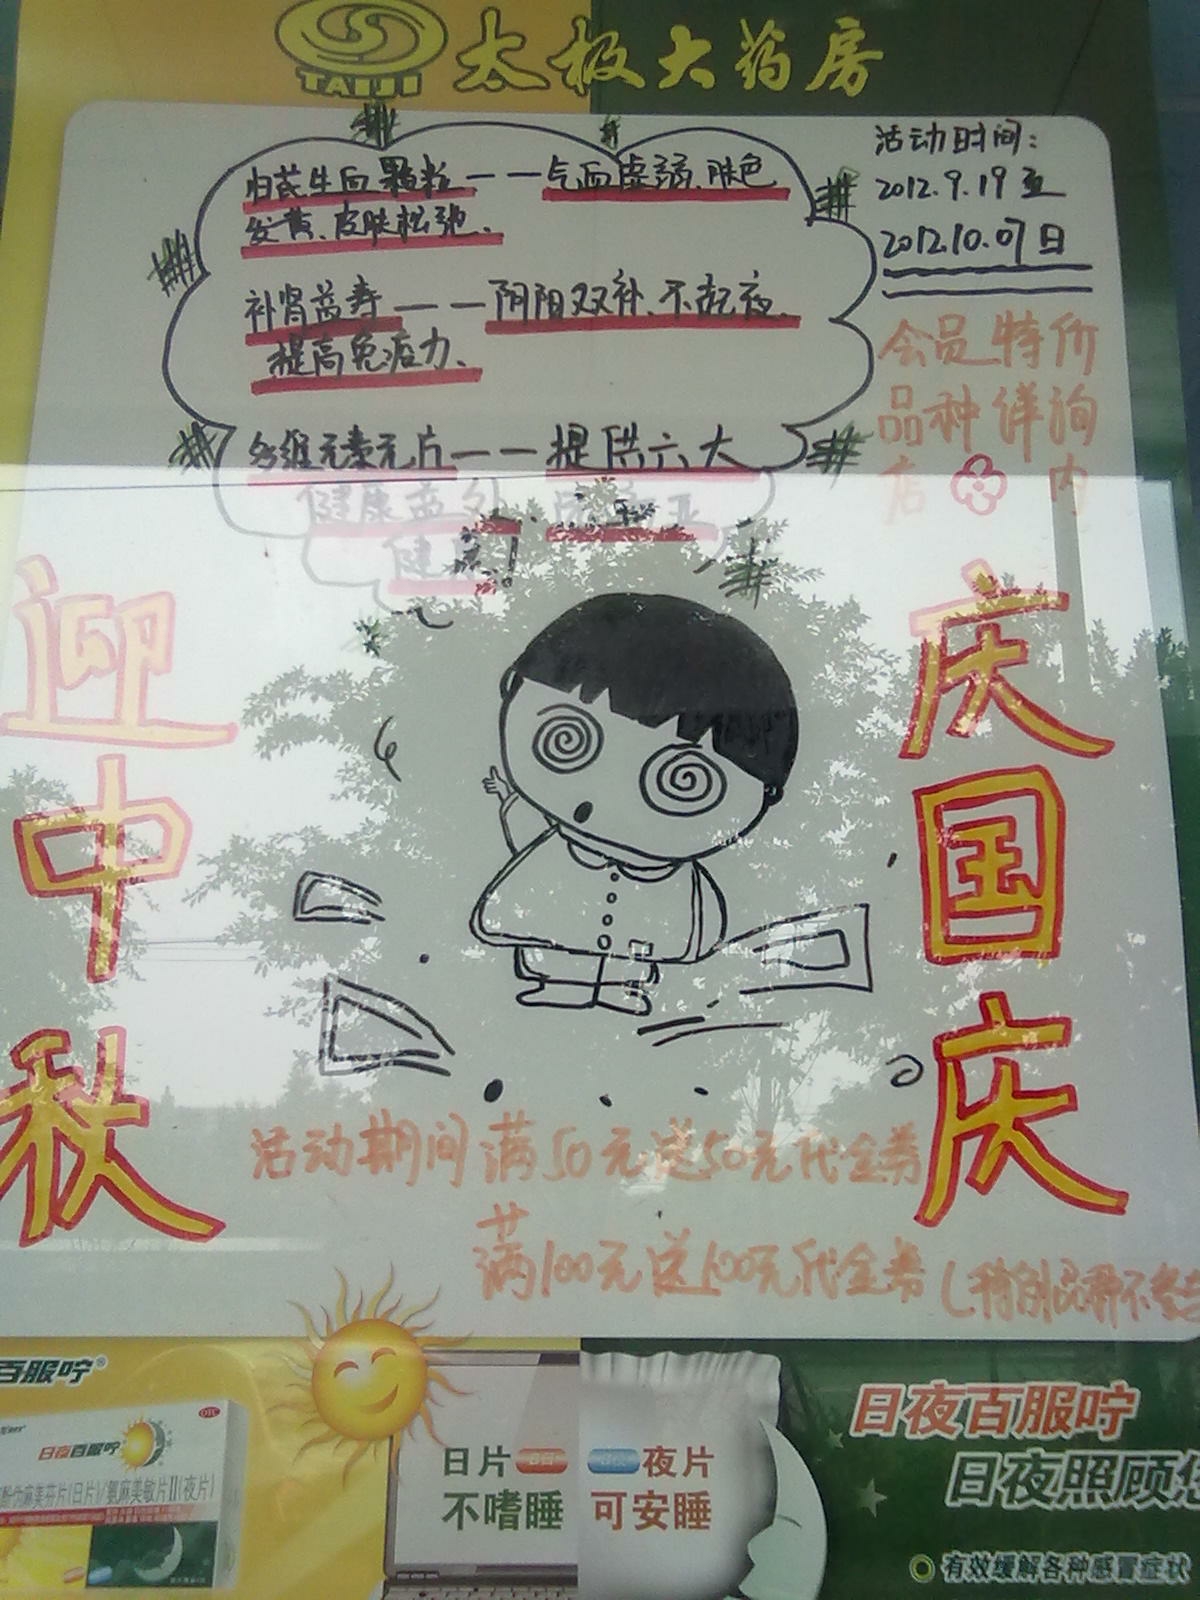 TAIJI 太极大药房
活动时间:
2012.9.19至
2012.10.07日
归芪生血颗粒——气血虚弱、肤色
发黄、皮肤松弛、
补肾益寿——阴阳双补、不起夜、
提高免疫力、
多维元素片——提供六大
健康益处
会员特价
品种详询
店内
迎中秋
庆国庆
活动期间 满50元送50元代金券
满100元送100元代金券(特别品种不参
百服咛®
OTC
日夜百服咛
酚伪麻美芬片(日片)/氨麻美敏片II(夜片)
日片 夜片
不嗜睡 可安睡
日夜百服咛
日夜照顾您
有效缓解各种感冒症状